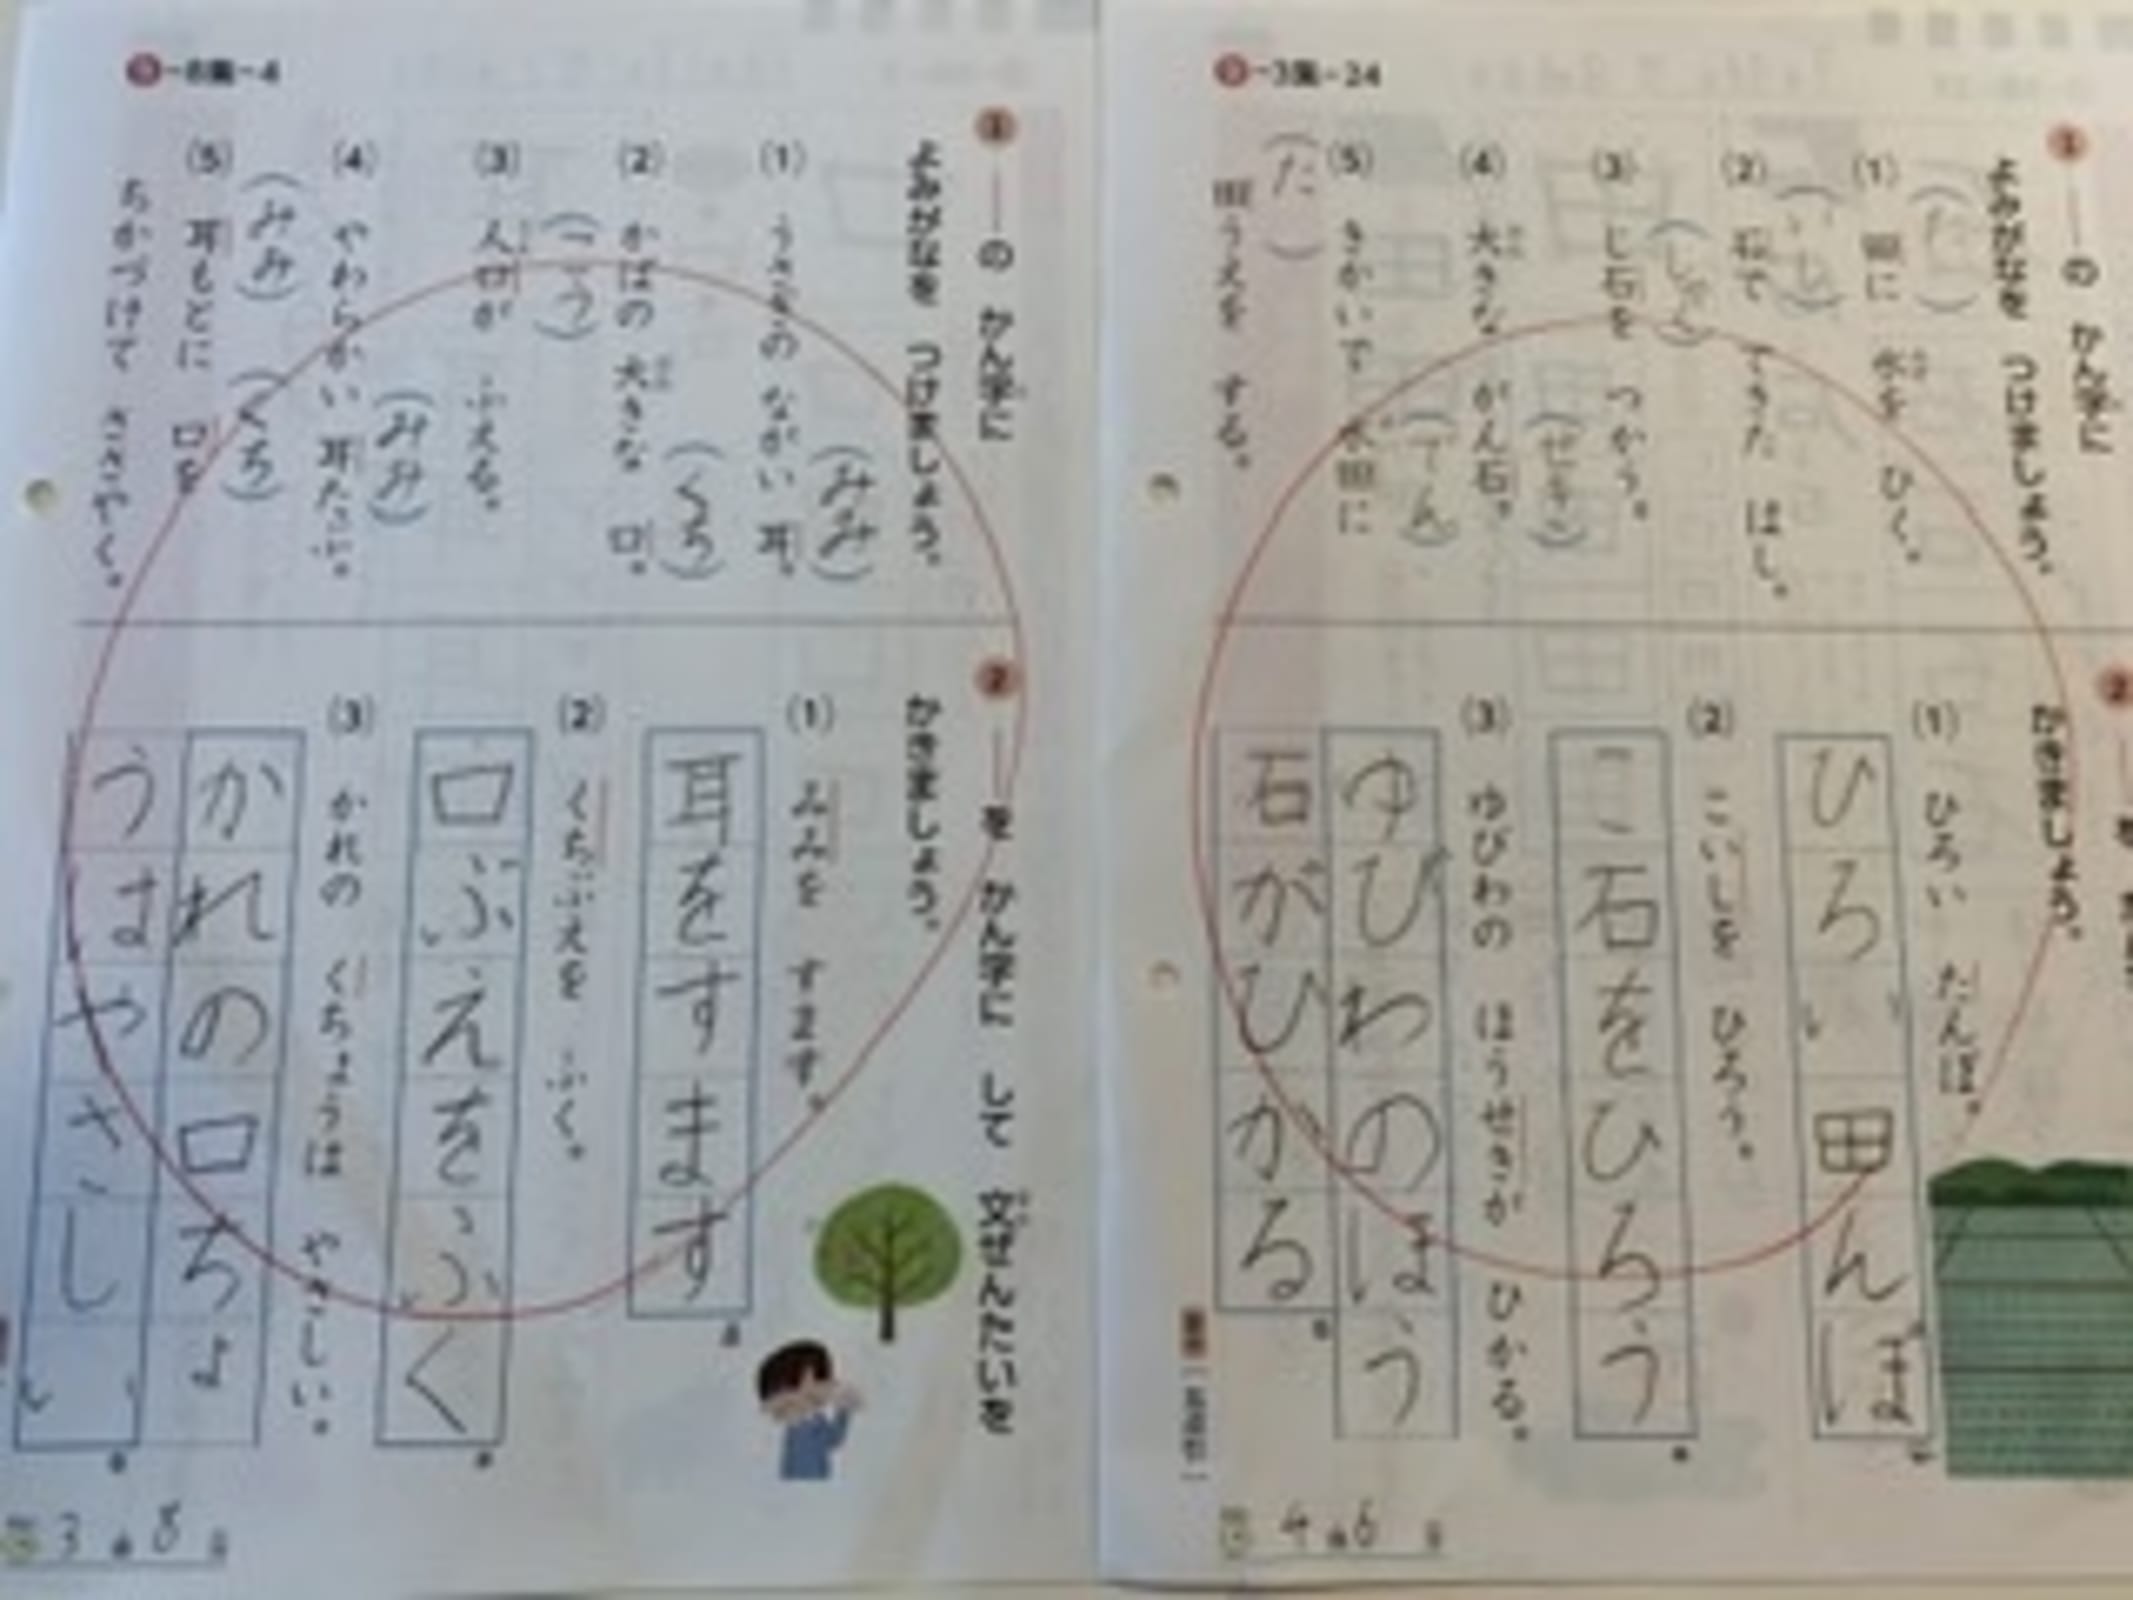 -3集-24
1
の かん字に
よみがなを つけましょう。
(1) 田に 水を ひく。
(た)
(2) 石で できた はし。
(いし)
(3) じ石を つかう。
(しゃく)
(4) 大きな がん石。
(せき)
(5) きかいで 水田に
(でん)
田うえを する。
(た)
2
かきましょう。
(1) ひろい たんぼ。
ひろい田んぼ
(2) こいしを ひろう。
こ石をひろう
(3) ゆびわの ほうせきが ひかる。
ゆびわのほう
石がひかる
4 6
-8集-4
1
の かん字に
よみがなを つけましょう。
(1) うさぎの ながい 耳。
(みみ)
(2) かばの 大きな 口。
(くち)
(3) 人口が ふえる。
(こう)
(4) やわらかい 耳たぶ。
(みみ)
(5) 耳もとに 口を
(みみ)
(くち)
ちかづけて ささやく。
2
を かん字に して 文ぜんたいを
かきましょう。
(1) みみを すます。
耳をすます
(2) くちぶえを ふく。
口ぶえをふく
(3) かれの くちょうは やさしい。
かれの口ちょ
うはやさしい
3 8